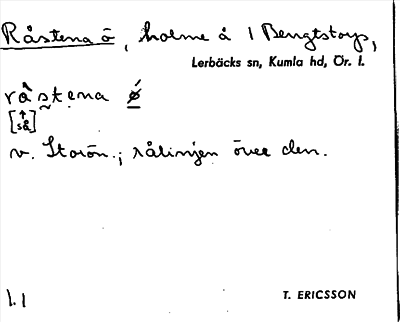 Råstena ö, holme å 1 Bengtstorp,
Lerbäcks sn, Kumla hd, Ör. l.
råstena ǿ
[så]
v. Storön.; rålinjen över den.
1.1
T. ERICSSON